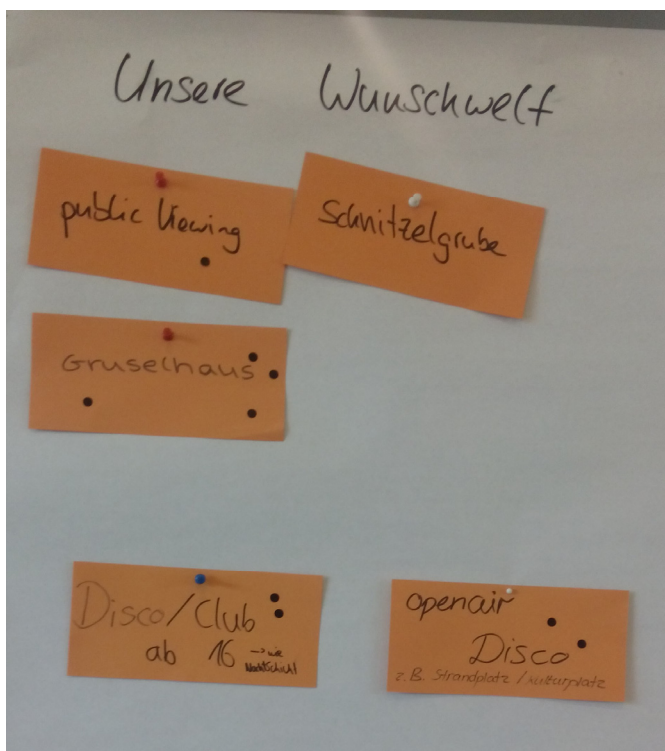 Unsere Wunschwelt
public Viewing
Schnitzelgrube
Gruselhaus
Disco/Club
ab 16 → wie
Nachtschicht
openair
Disco
z.B. Strandplatz / Kulturplatz